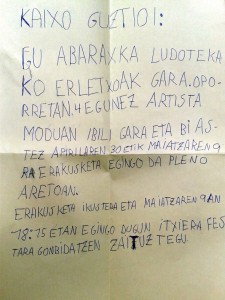 KAIXO GUZTIOI:
GU ABARAXKA LUDOTEKA
KO ERLETXOAK GARA. OPO-
RRETAN, 4 EGUNEZ ARTISTA
MODUAN IBILI GARA ETA BI AS-
TEZ APIRILAREN 30 ETIK MAIATZAREN 9
RA ERAKUSKETA EGINGO DA PLENO
ARETOAN.
ERAKUSKETA IKUSTERA ETA MAIATZAREN 9AN
18:15 ETAN EGINGO DUGUN ITXIERA FES
TARA GONBIDATZEN ZAITUZTEGU.